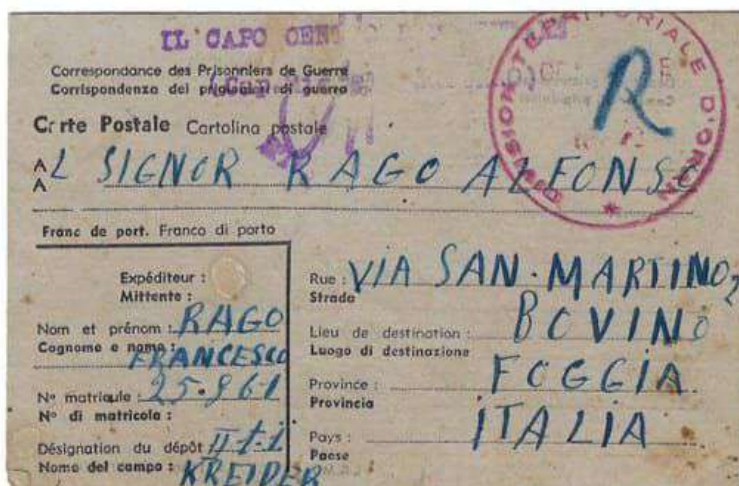 IL CAPO
Correspondance des Prisonniers de Guerre
Corrispondenza dei prigionieri di guerra
Carte Postale Cartolina postale
AL SIGNOR RAGO ALFONSO
A
Franc de port. Franco di porto
DIVISION TERRITORIALE D'ORAN
R
Expéditeur :
Mittente :
Nom et prénom : RAGO
Cognome e nome : FRANCESCO
Nº matricule : 25.861
Nº di matricola :
Désignation du dépôt II-1-1
Nome del campo : KREIDER
Rue : VIA SAN.MARTINO, 2
Strada
Lieu de destination : BOVINO
Luogo di destinazione
Province : FOGGIA
Provincia
Pays : ITALIA
Paese